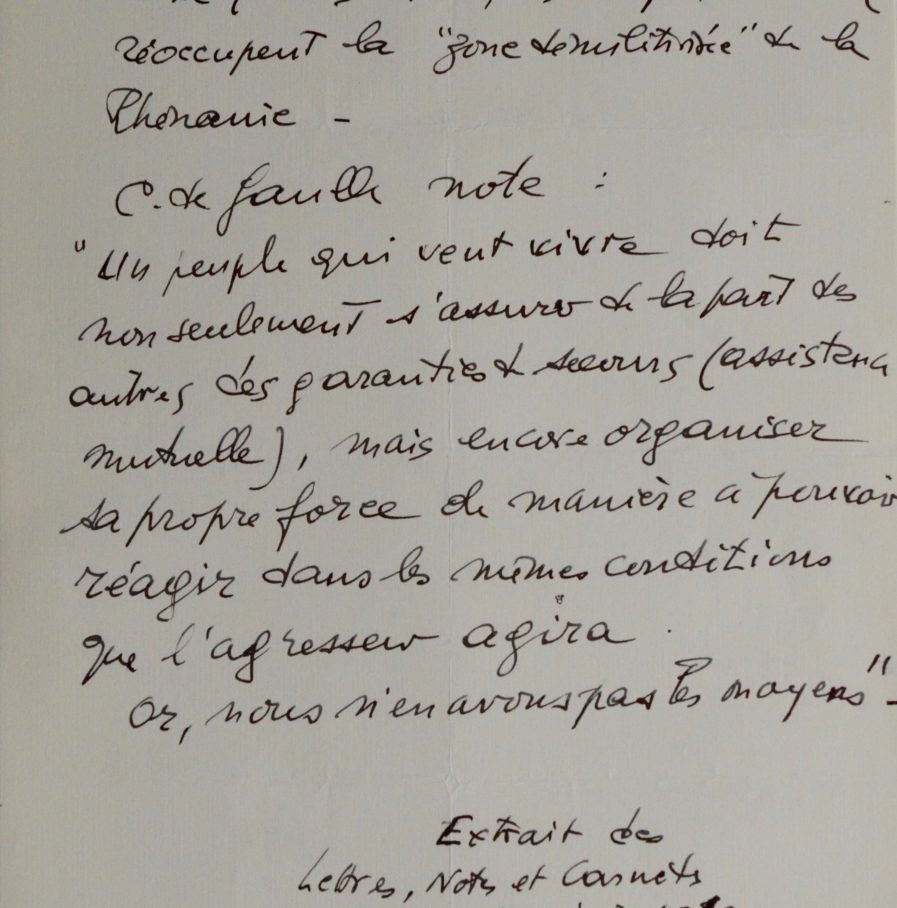 réoccupent la "zone démilitarisée" de la
Rhénanie -
C. de Gaulle note :
"Un peuple qui veut vivre doit
non seulement s'assurer de la part des
autres des garanties de secours (assistanc
mutuelle), mais encore organiser
sa propre force de manière à pouvoir
réagir dans les mêmes conditions
que l'agresseur agira.
Or, nous n'en avons pas les moyens" -
Extrait des
Lettres, Notes et Carnets